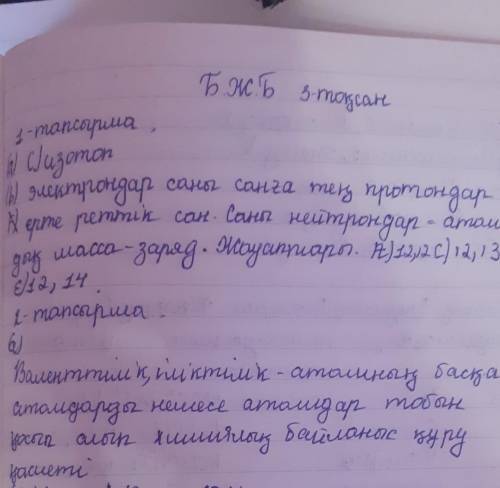 БЖБ 3-тоқсан
1-тапсырма.
а) С) изотоп
b) электрондар саны санға тең протондар
ерте реттік сан. Саны нейтрондар = атом
дық масса - заряд. Жауаптары. А) 12,12 С) 12,13
Е) 12,14.
2-тапсырма.
а)
Валенттілік, іліктілік - атомның басқа
атомдарды немесе атомдар тобын
қосып алып химиялық байланыс құру
қасиеті